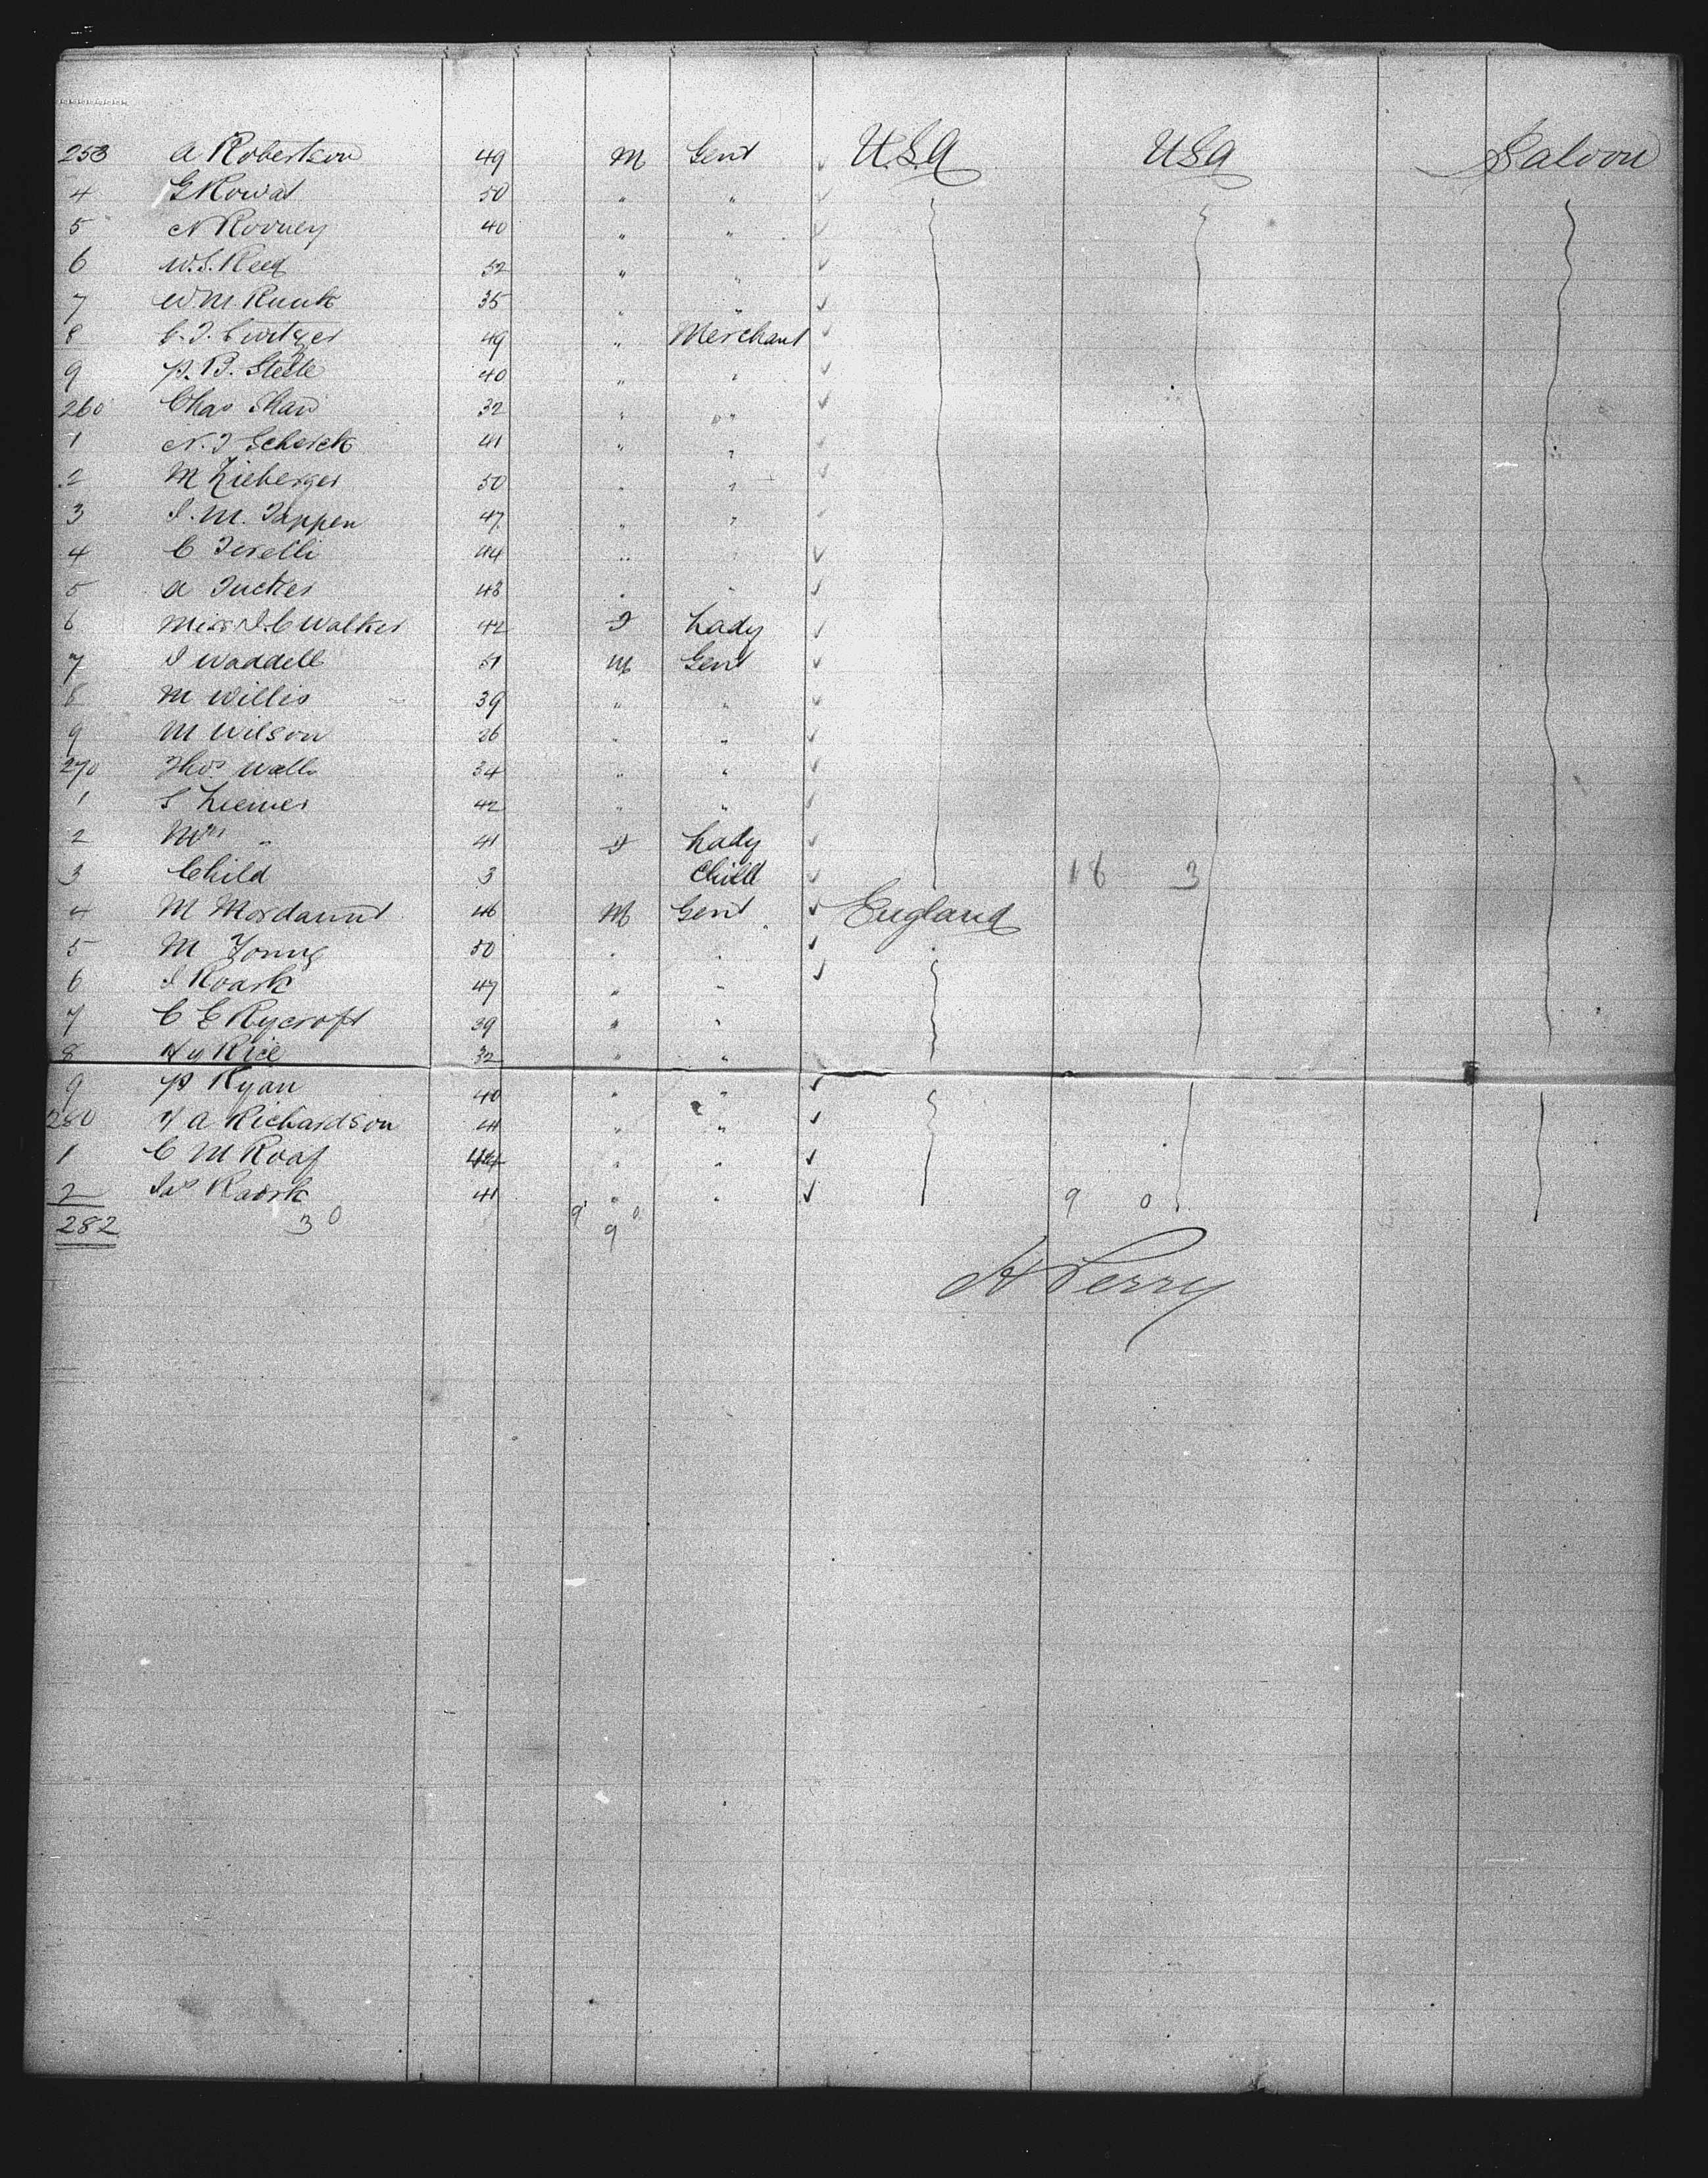 253 A Robertson 49 M Gent U.S.A USA Saloon
4 G Rowat 50 " "
5 N Rooney 40 " "
6 W.S. Reed 52 " "
7 W.M Runk 35 " "
8 49 " Merchant
9 P.B. Steele 40 " "
260 Chas Shaw 32 " "
1 N.J Schenck 41 " "
2 M Lieberger 50 " "
3 J.M. Tappen 47 " "
4 C Terelli 44 " "
5 A Tucker 48 " "
6 Miss J.C Walker 42 F Lady
7 J Waddell 51 M Gent
8 M Willis 39 " "
9 M Wilson 26 " "
270 Thos Walls 34 " "
1 S Liemer 42 " "
2 Mrs " 41 F Lady
3 Child 3 Child 18 3
4 M Mordaunt 46 M Gent England
5 M Young 50 " "
6 J Roark 47 " "
7 C E Rycroft 39 " "
8 Hy Rice 32 " "
9 P Ryan 40 " "
280 A Richardson 41 " "
1 C M Roaf 44 " "
2 Jas 41 " " 9 0
282 30 9 0
9
H Perry